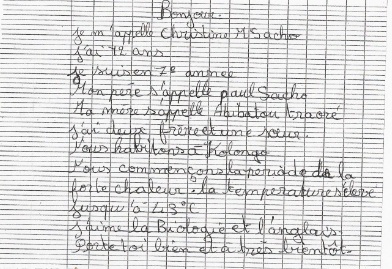 Bonjour.
je m'appelle Christine M Sacho
j'ai 12 ans.
je suis en 7e année
Mon père s'appelle paul Sacho
Ma mère s'appelle Ahibatou traoré
j'ai deux frère et une sœur.
Nous habitons à Kolongo
Nous commençons la periode de la
forte chaleur. la temperature s'élève
jusqu'à 43°C
j'aime la Biologie et l'anglais.
Porte toi bien et à très bientôt.